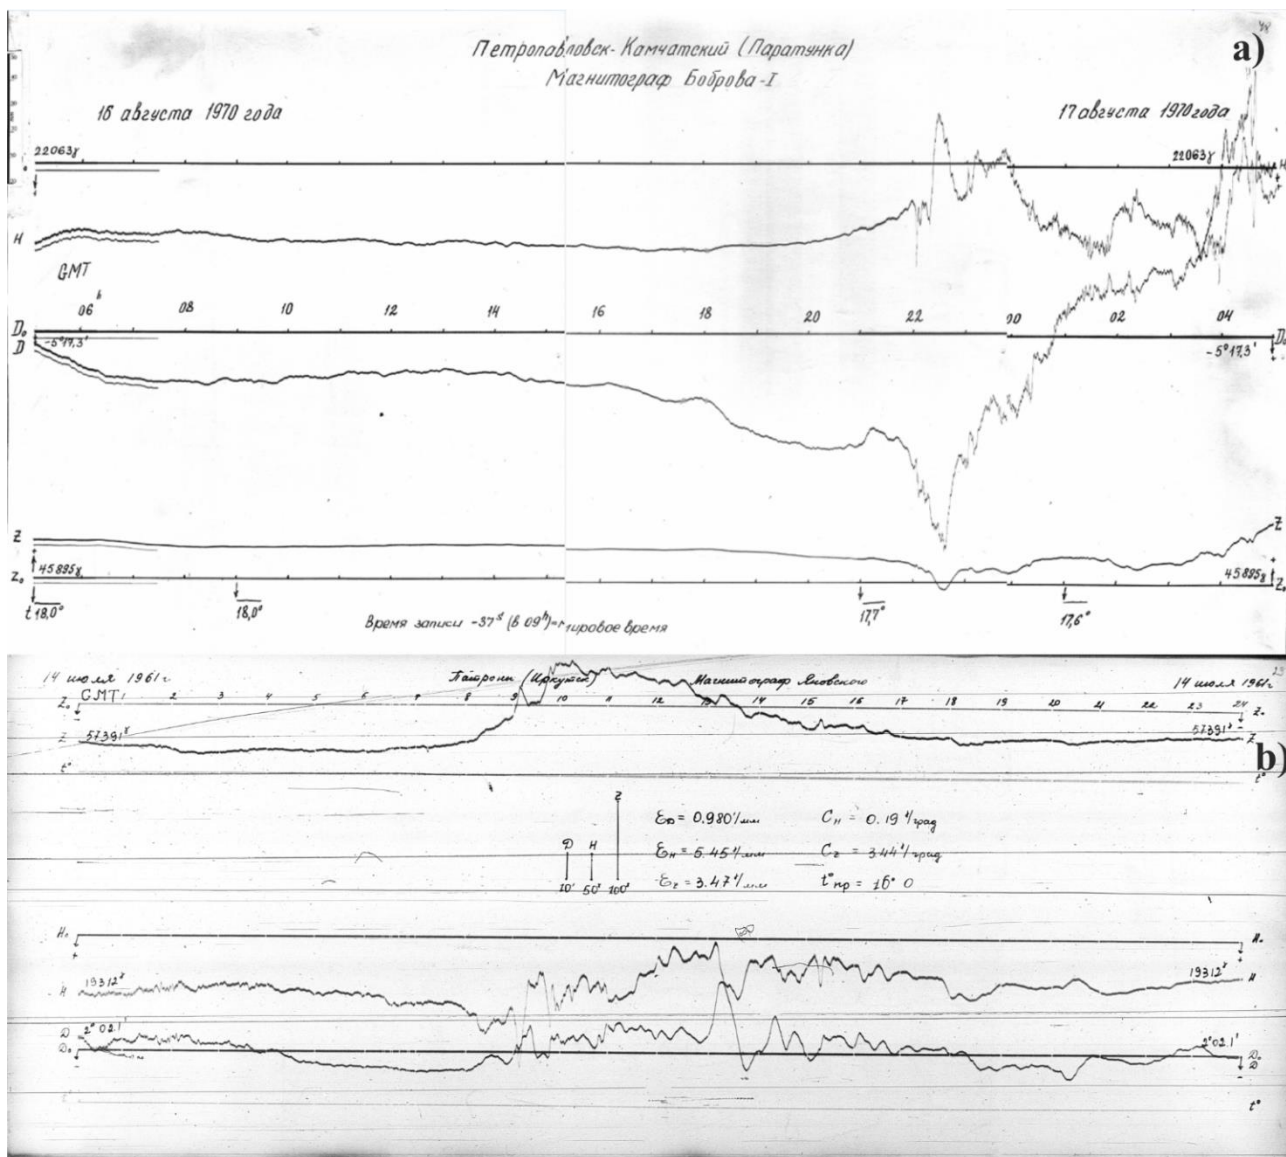 48
a)
Петропавловск-Камчатский (Паратунка)
Магнитограф Боброва-I
16 августа 1970 года
17 августа 1970 года
22063γ
22063γ
H
H
GMT
06ʰ 08 10 12 14 16 18 20 22 00 02 04
D₀
D₀
D
-5°17,3'
-5°17,3'
Z
Z
Z₀
45895γ
45895γ
Z₀
t 18,0°
18,0°
17,7°
17,6°
Время записи -37ˢ (в 09ʰ)=мировое время
23
14 июля 1961 г
Патроны (Иркутск)
Магнитограф Яновского
14 июля 1961г
GMT 1 2 3 4 5 6 7 8 9 10 11 12 13 14 15 16 17 18 19 20 21 22 23 24
Z₀
Z₀
Z
57391γ
57391γ
Z
b)
t°
t°
Z
D H
10' 50γ 100γ
ε_D = 0.980'/мм
C_H = 0.19γ/град
ε_H = 5.45γ/мм
C_Z = 3.44γ/град
ε_Z = 3.47γ/мм
t°пр = 16°0
H₀
H₀
19312γ
19312γ
H
H
D
2°02.1'
2°02.1'
D₀
D₀
D
t°
t°